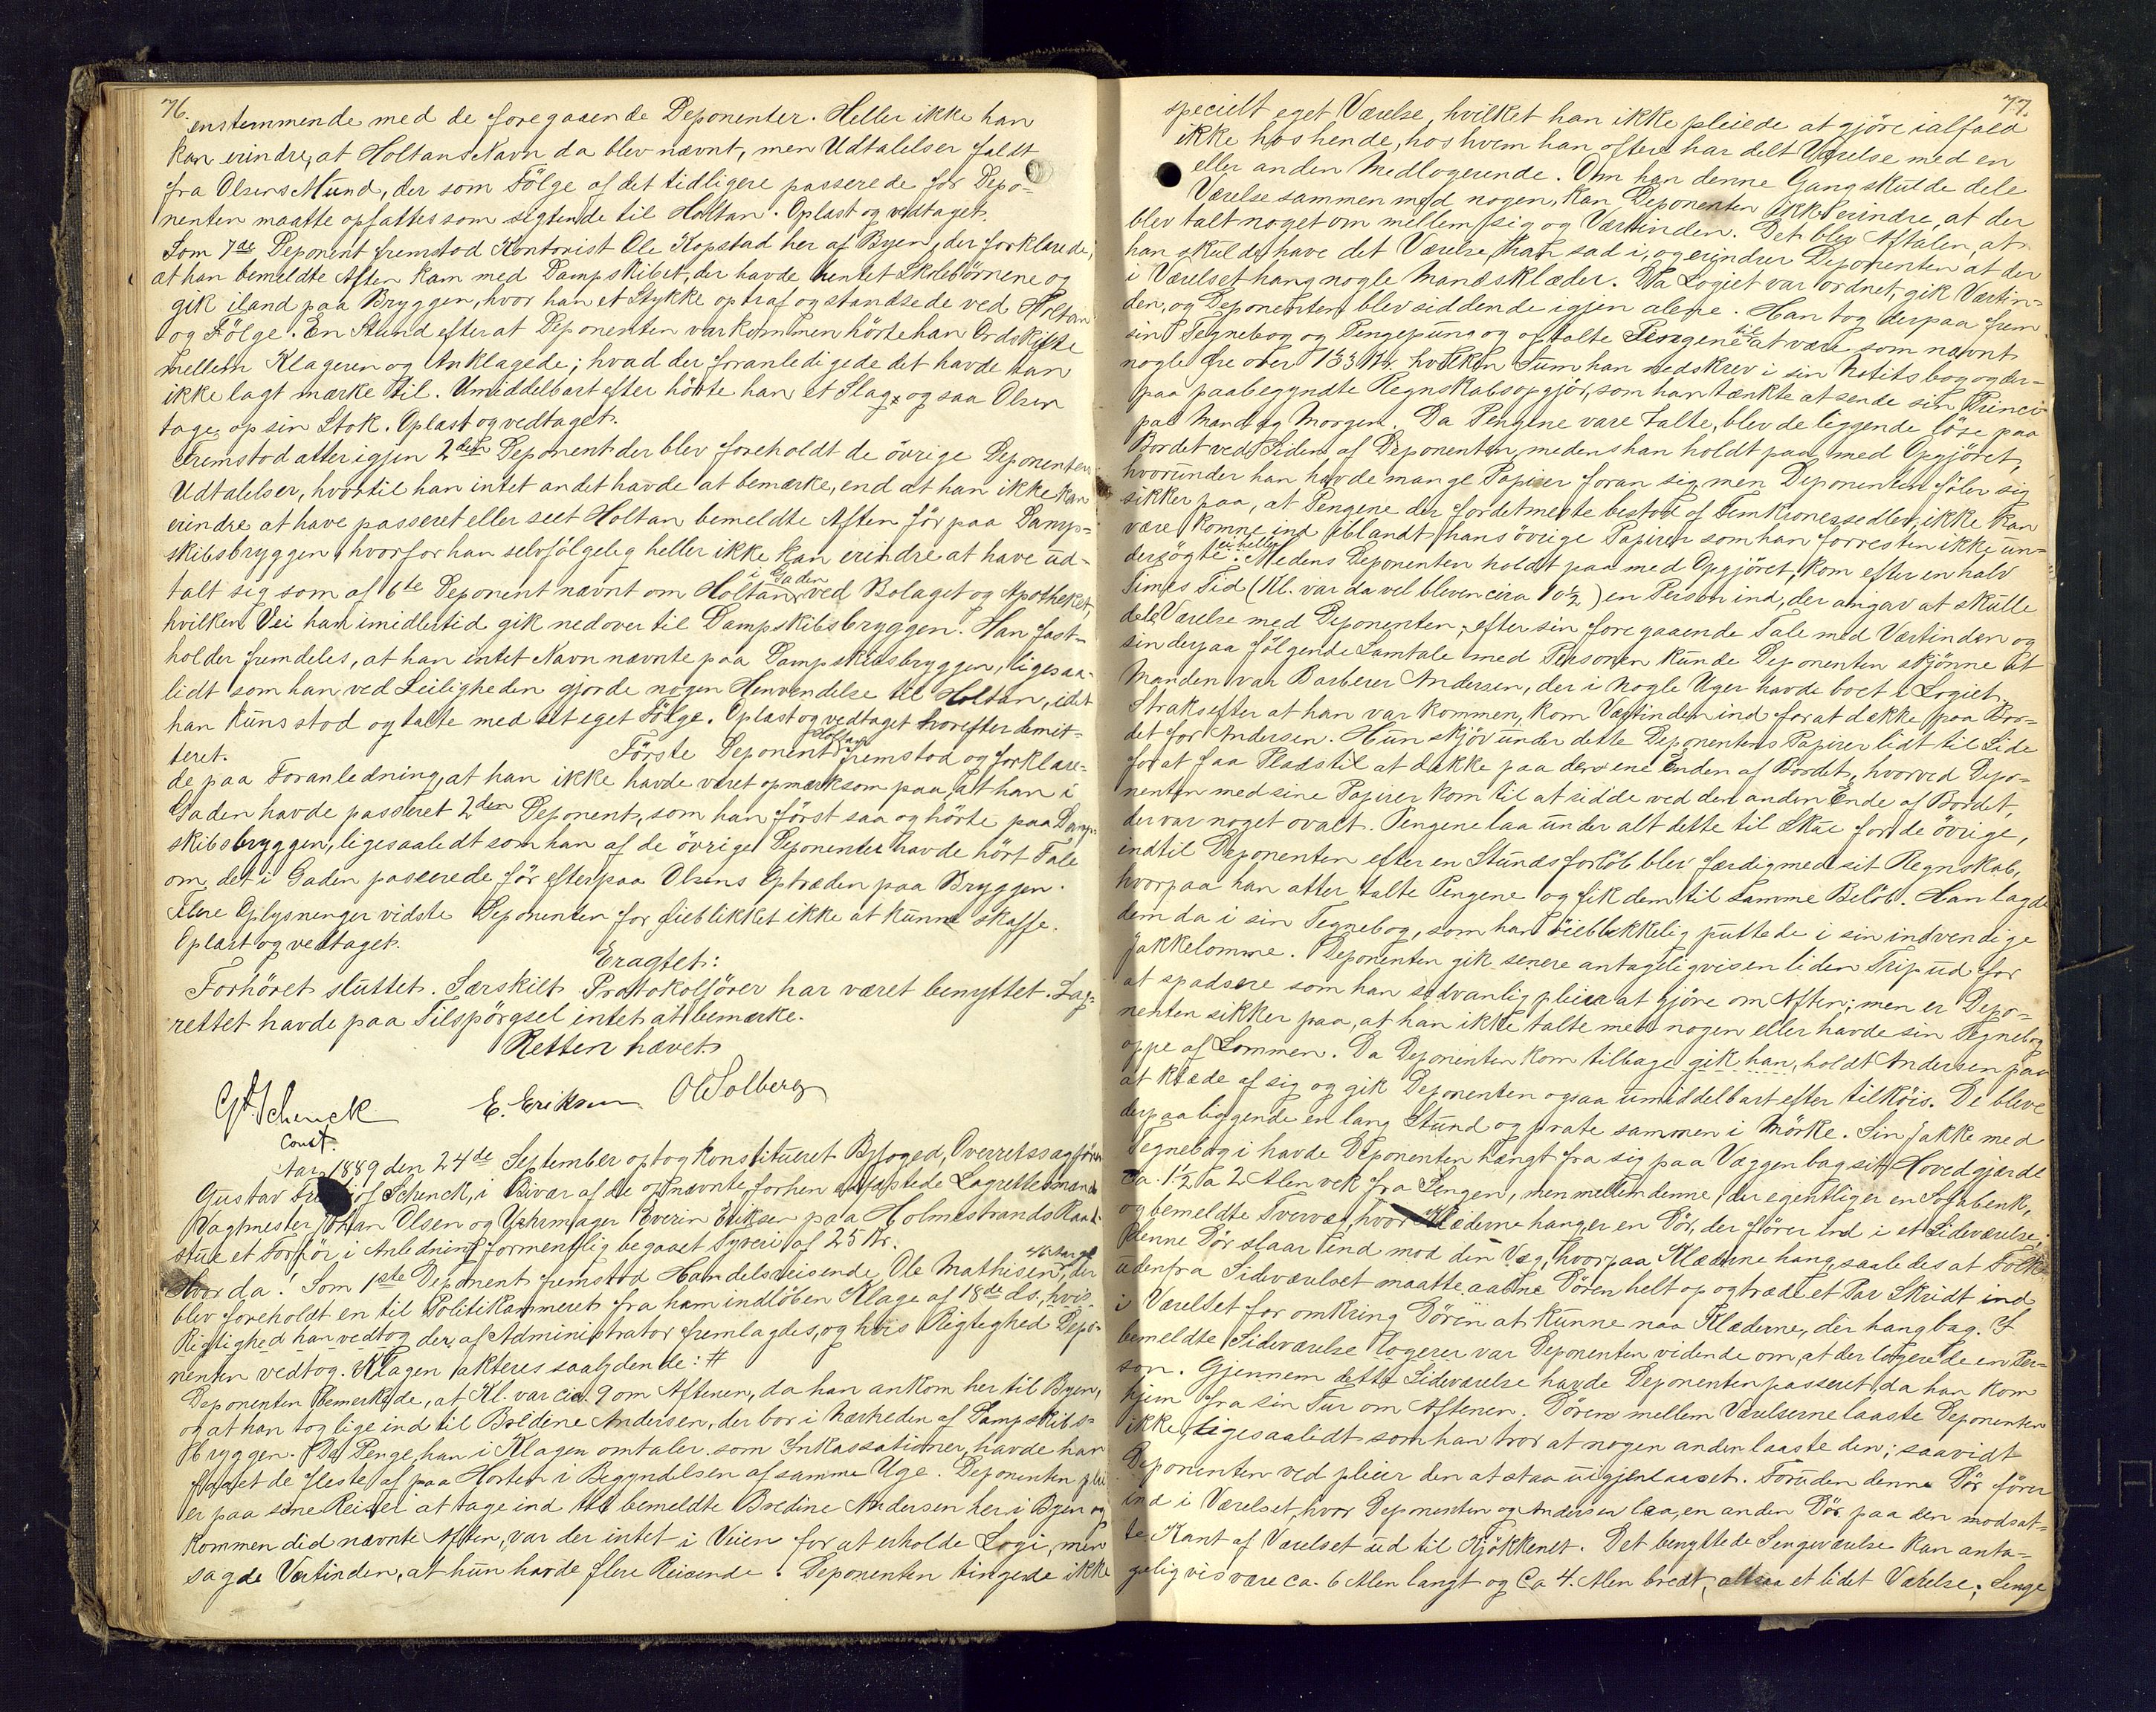 76.
enstemmende med de foregaaende Deponenter. Heller ikke han
kan erindre, at Holtans Navn da blev nævnt, men Udtalelser faldt
fra Olsens Mund, der som Fölge af det tidligere passerede for Depo-
nenten maatte opfattes som sigtende til Holtan. Oplæst og vedtaget.
Som 7de Deponent fremstod Kontorist Ole Kopstad her af Byen, der forklarede,
at han bemeldte Aften kam med Dampskibet, der havde hentet Skolebörnene og
gik iland paa Bryggen, hvor han et Stykke optraf og standsede ved Holtan
og Fölge. En Stund efterat Deponenten var kommen hörte han Ordskifte
mellem Klageren og Anklagede; hvad der foranledigede det havde han
ikke lagt mærke til. Umiddelbart efter hörte han et Slag og saa Olsen
tage op sin Stok. Oplæst og vedtaget.
Fremstod atter igjen 2den Deponent der blev foreholdt de övrige Deponenters
Udtalelser, hvortil han intet andet havde at bemærke, end at han ikke kan
erindre at have passeret eller seet Holtan bemeldte Aften för paa Damp-
skibsbryggen hvorfor han selvfölgelig heller ikke kan erindre at have ud-
talt sig som af 6te Deponent nævnt om Holtan i Gaden ved Bolaget og Apotheket,
hvilken Vei han imidlertid gik nedover til Dampskibsbryggen. Han fast-
holder fremdeles, at han intet Navn nævnte paa Dampskibsbryggen, ligesaa-
lidt som han ved Leiligheden gjorde nogen Henvendelse til Holtan, idet
han kuns stod og talte med sit eget Fölge. Oplæst og vedtaget hvorefter demit-
teret. Förste Deponent Holtan fremstod og forklare-
de paa Foranledning, at han ikke havde været opmærksom paa, at han i
Gaden havde passeret 2den Deponent, som han först saa og hörte paa Damp-
skibsbryggen, ligesaalidt som han af de övrige Deponenter havde hört Tale
om det i Gaden passerede för efterpaa Olsens Optræden paa Bryggen.
Flere Oplysninger vidste Deponenten for Öieblikket ikke at kunne skaffe.
Oplæst og vedtaget.
Eragtet:
Forhöret sluttet. Særskilt Protokolförer har været benyttet. Lag-
rettet havde paa Tilspörgsel intet at bemærke.
Retten hævet.
G. F. Schenck E. Eriksen O Solberg
const.
Aar 1889 den 24de September optog konstitueret Byfoged, Overretssagförer
Gustav Schenck, i Bivær af de opnævnte forhen Lagrettesmænd
Vagtmester Johan Olsen og Uhrmager Everin Eriksen paa Holmestrands Raad-
stue et Forhör i Anledning formentlig begaaet Tyveri af 25 Kr.
Hvor da! Som 1ste Deponent fremstod Handelsreisende Ole Mathisen, der
blev foreholdt en til Politikammeret fra ham indlöben Klage af 18de ds. hvis
Rigtighed han vedtog der af Administrator fremlagdes, og hvis Rigtighed Depo-
nenten vedtog. Klagen akteres saalydende: #
Deponenten bemerkede, at Kl. var ca. 9 om Aftenen, da han ankom her til Byen,
og at han tog lige ind til Boldine Andersen, der bor i Nærheden af Dampskibs-
bryggen. De Penge, han i Klagen omtaler som Inkassationer, havde han
faaet de fleste af paa Horten i Begyndelsen af samme Uge. Deponenten plei-
er paa sine Reiser at tage ind til bemeldte Boldine Andersen her i Byen og
kommen did nævnte Aften, var der intet i Veien for at erholde Logi, men
sagde Vertinden, at hun havde flere Reisende. Deponenten tingede ikke
77.
specielt eget Værelse, hvilket han ikke pleiede at gjöre ialfald
ikke hos hende, hos hvem han oftere har delt Værelse med en
eller anden Medlogerende. Om han denne Gang skulde dele
Værelse sammen med nogen, kan Deponenten ikke erindre, at der
blev talt noget om mellem sig og Vertinden. Det blev Aftalen, at
han skulde have det Værelse, han sad i, og erindrer Deponenten at der
i Værelset hang nogle Mandsklæder. Da Logiet var ordnet, gik Vertin-
den, og Deponenten blev siddende igjen alene. Han tog derpaa frem
sin Tegnebog og Pengepung og optalte Pengene til at være som nævnt
nogle Öre over 133 Kr. hvilken Sum han nedskrev i sin Notitsbog og der-
paa paabegyndte Regnskabsopgjör, som han tænkte at sende sin Princi-
pal Mandag Morgen. Da Pengene vare talte, blev de liggende löse paa
Bordet ved Siden af Deponenten, medens han holdt paa med Opgjöret,
hvorunder han havde mange Papirer foran sig men Deponenten föler sig
sikker paa, at Pengene der fordetmeste bestod af Femkronessedler, ikke kan
være komne ind iblandt hans övrige Papirer som han forresten ikke un-
dersögte. Medens Deponenten holdt paa med Opgjöret, kom efter en halv
Times Tid (Kl. var da vel bleven circa 10½) en Person ind, der angav at skulle
dele Værelse med Deponenten; efter sin foregaaende Tale med Vertinden og
sin derpaa fölgende Samtale med Personen kunde Deponenten skjönne at
Manden var Barberer Andersen, der i nogle Uger havde boet i Logiet.
Straks efter at han var kommen, kom Vertinden ind for at dække paa Bor-
det for Andersen. Hun skjöv under dette Deponentens Papirer lidt til Side
forat faa Plads til at dække paa den ene Enden af Bordet, hvorved Depo-
nenten med sine Papirer kom til at sidde ved den anden Ende af Bordet,
der var noget ovalt. Pengene laa under alt dette til Skue for de övrige,
indtil Deponenten efter en Stunds forlöb blev færdig med sit Regnskab,
hvorpaa han atter talte Pengene og fik dem til samme Belöb. Han lagde
dem da i sin Tegnebog, som han öieblikkelig puttede i sin indvendige
Jakkelomme. Deponenten gik senere antageligvis en liden Trip ud for
at spadsere som han sedvanlig pleier at gjöre om Aften; men er Depo-
nenten sikker paa, at han ikke talte med nogen eller havde sin Tegnebog
oppe af Lommen. Da Deponenten kom tilbage gik han, holdt Andersen paa
at klæde af sig og gik Deponenten ogsaa umiddelbart efter tilköis. De bleve
derpaa liggende en lang Stund og prate sammen i Mörke. Sin Jakke med
Tegnebog i havde Deponenten hængt fra sig paa Væggen bag sit Hovedgjærde
ca. 1½ a 2 Alen vek fra Sengen, men mellem denne, der egentlig er en Sofabenk,
og bemeldte Tvervæg, hvor Klæderne hang er en Dör, der förer ind i et Sideværelse;
denne Dör slaar ind mod den Væg, hvorpaa Klæderne hang, saaledes at Folk
udenfra Sideværelset maatte aabne Dören helt op og træde et Par Skridt ind
i Værelset for omkring Dören at kunne naa Klæderne, der hang bag. I
bemeldte Sideværelse logerer var Deponenten vidende om, at der logerede en Per-
son. Gjennem dette Sideværelse havde Deponenten passeret, da han kom
hjem fra sin Tur om Aftenen. Dören mellem Værelserne laaste Deponenten
ikke, ligesaalidt som han tror at nogen anden laaste den; saavidt
Deponenten ved pleier den at staa uigjenlaaset. Foruden denne Dör förer
ind i Værelset, hvor Deponenten og Andersen laa, en anden Dör paa den modsat-
te Kant af Værelset ud til Kjökkenet. Det benyttede Sengeværelse kan anta-
geligvis være ca. 6 Alen langt og ca 4. Alen bredt, altsaa et lidet Værelse; Senge